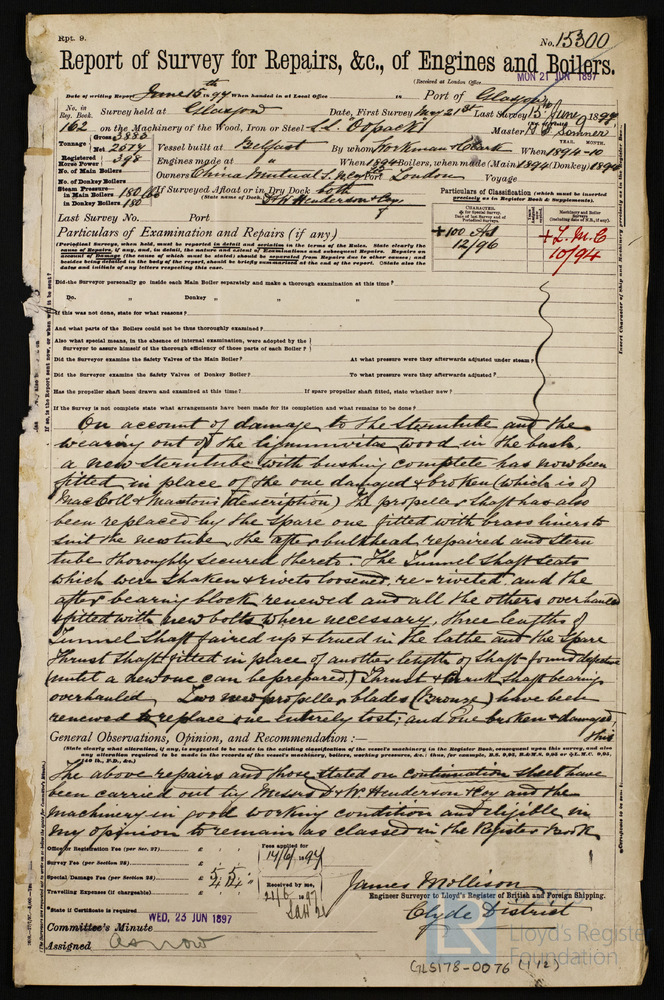 Rpt. 9.
No. 15300
Report of Survey for Repairs, &c., of Engines and Boilers.
(Received at London Office MON 21 JUN 1897
Date of writing Report June 15th 1897 When handed in at Local Office 18 Port of Glasgow
No. in Reg. Book. Survey held at Glasgow Date, First Survey May 21st Last Survey 15th June 1897
162 on the Machinery of the Wood, Iron or Steel S.S. Oopack Master
Tonnage Gross 3883 Net 2517 Vessel built at Belfast By whom Workman Clark When 1894-10
YEAR. MONTH.
Registered Horse Power 398 Engines made at " When 1894 Boilers, when made (Main) 1894 (Donkey) 1894
No. of Main Boilers
No. of Donkey Boilers Owners China Mutual S. N. Coy Port London Voyage
Steam Pressure in Main Boilers 180 lbs If Surveyed Afloat or in Dry Dock both
in Donkey Boilers 180 (State name of Dock.) D & W Henderson & Coy
Particulars of Classification (which must be inserted precisely as in Register Book & Supplements).
Last Survey No. Port
Particulars of Examination and Repairs (if any)
+100 A1 12/96
+ L.M.C 10/94
(Periodical Surveys, when held, must be reported in detail and seriatim in the terms of the Rules. State clearly the
cause of Repairs, if any, and, in detail, the nature and extent of Examinations and subsequent Repairs. Repairs on
account of Damage (the cause of which must be stated) should be separated from Repairs due to other causes; and
besides being detailed in the body of the report, should be briefly summarised at the end of the report. State also the
dates and initials of any letters respecting this case.
Did the Surveyor personally go inside each Main Boiler separately and make a thorough examination at this time?
Do. " Donkey " " "
If this was not done, state for what reasons?
And what parts of the Boilers could not be thus thoroughly examined?
Also what special means, in the absence of internal examination, were adopted by the
Surveyor to assure himself of the thorough efficiency of those parts of each Boiler?
Did the Surveyor examine the Safety Valves of the Main Boiler? At what pressure were they afterwards adjusted under steam?
Did the Surveyor examine the Safety Valves of Donkey Boiler? To what pressure were they afterwards adjusted?
Has the propeller shaft been drawn and examined at this time? If spare propeller shaft fitted, state whether new?
If the Survey is not complete state what arrangements have been made for its completion and what remains to be done?
On account of damage to the Sterntube and the
wearing out of the lignumvitae wood in the bush,
a new Sterntube with bushing complete has now been
fitted in place of the one damaged & broken (which is of
MacColl & Mastons description) The propeller Shaft has also
been replaced by the Spare one fitted with brass liners to
suit the new tube, the after bulkhead repaired and Stern
tube thoroughly secured thereto. The Tunnel Shaft Seats
which were Shaken & rivets loosened, re-riveted and the
after bearing block renewed and all the others overhauled
& fitted with new bolts where necessary, three lengths of
Tunnel Shaft faired up & trued in the lathe and the Spare
Thrust Shaft fitted in place of another length of Shaft found defective
(until a new one can be prepared) Thrust & Crank Shaft bearings
overhauled. Two new propeller blades (Bronze) have been
renewed to replace one entirely lost; and one broken & damaged,
this
General Observations, Opinion, and Recommendation:—
(State clearly what alteration, if any, is suggested to be made in the existing classification of the vessel's machinery in the Register Book, consequent upon this survey, and also
any alteration required to be made in the records of the vessel's machinery, boilers, working pressures, &c.: thus, for example, B.S. 9,95, B.&M.S. 9,95 or L.M.C. 9,95,
140 lb., F.D., &c.)
The above repairs and those stated on Continuation Sheet have
been carried out by Messrs D & W Henderson & Coy and the
machinery in good working condition and eligible in
my opinion to remain as classed in the Register Book
Office or Registration Fee (per Sec. 27) £ : :
Survey Fee (per Section 28) £ : :
Special Damage Fee (per Section 28) £ 5 : 5 :
Travelling Expenses (if chargeable) £ : :
Fees applied for
14/6/1897
Received by me,
21/6 1897
James Mollison
Engineer Surveyor to Lloyd's Register of British and Foreign Shipping.
Clyde District
State if Certificate is required
Committee's Minute WED, 23 JUN 1897
Assigned as now
Lloyd's Register
Foundation
GLS178-0076 (1/2)